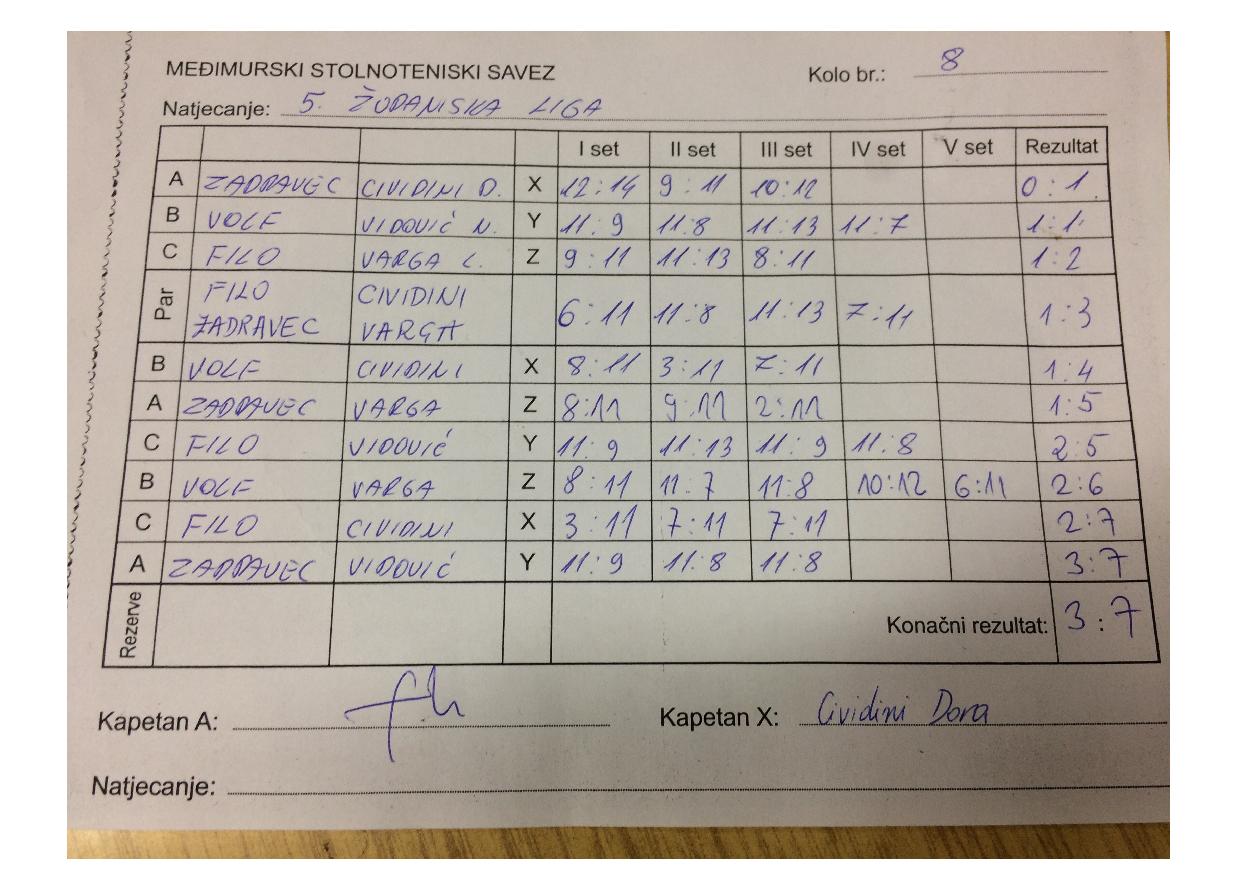 MEĐIMURSKI STOLNOTENISKI SAVEZ Kolo br.: 8
Natjecanje: 5. ŽUPANIJSKA LIGA
I set II set III set IV set V set Rezultat
A ZADRAVEC CIVIDINI D. X 12:14 9:11 10:12 0:1.
B VOLF VIDOVIĆ N. Y 11:9 11:8 11:13 11:7 1:1
C FILO VARGA L. Z 9:11 11:13 8:11 1:2
Par FILO ZADRAVEC CIVIDINI VARGA 6:11 11:8 11:13 7:11 1:3
B VOLF CIVIDINI X 8:11 3:11 7:11 1:4
A ZADRAVEC VARGA Z 8:11 9:11 2:11 1:5
C FILO VIDOVIĆ Y 11:9 11:13 11:9 11:8 2:5
B VOLF VARGA Z 8:11 11:7 11:8 10:12 6:11 2:6
C FILO CIVIDINI X 3:11 7:11 7:11 2:7
A ZADRAVEC VIDOVIĆ Y 11:9 11:8 11:8 3:7
Rezerve Konačni rezultat: 3:7
Kapetan A: Kapetan X: Cividini Dora
Natjecanje: